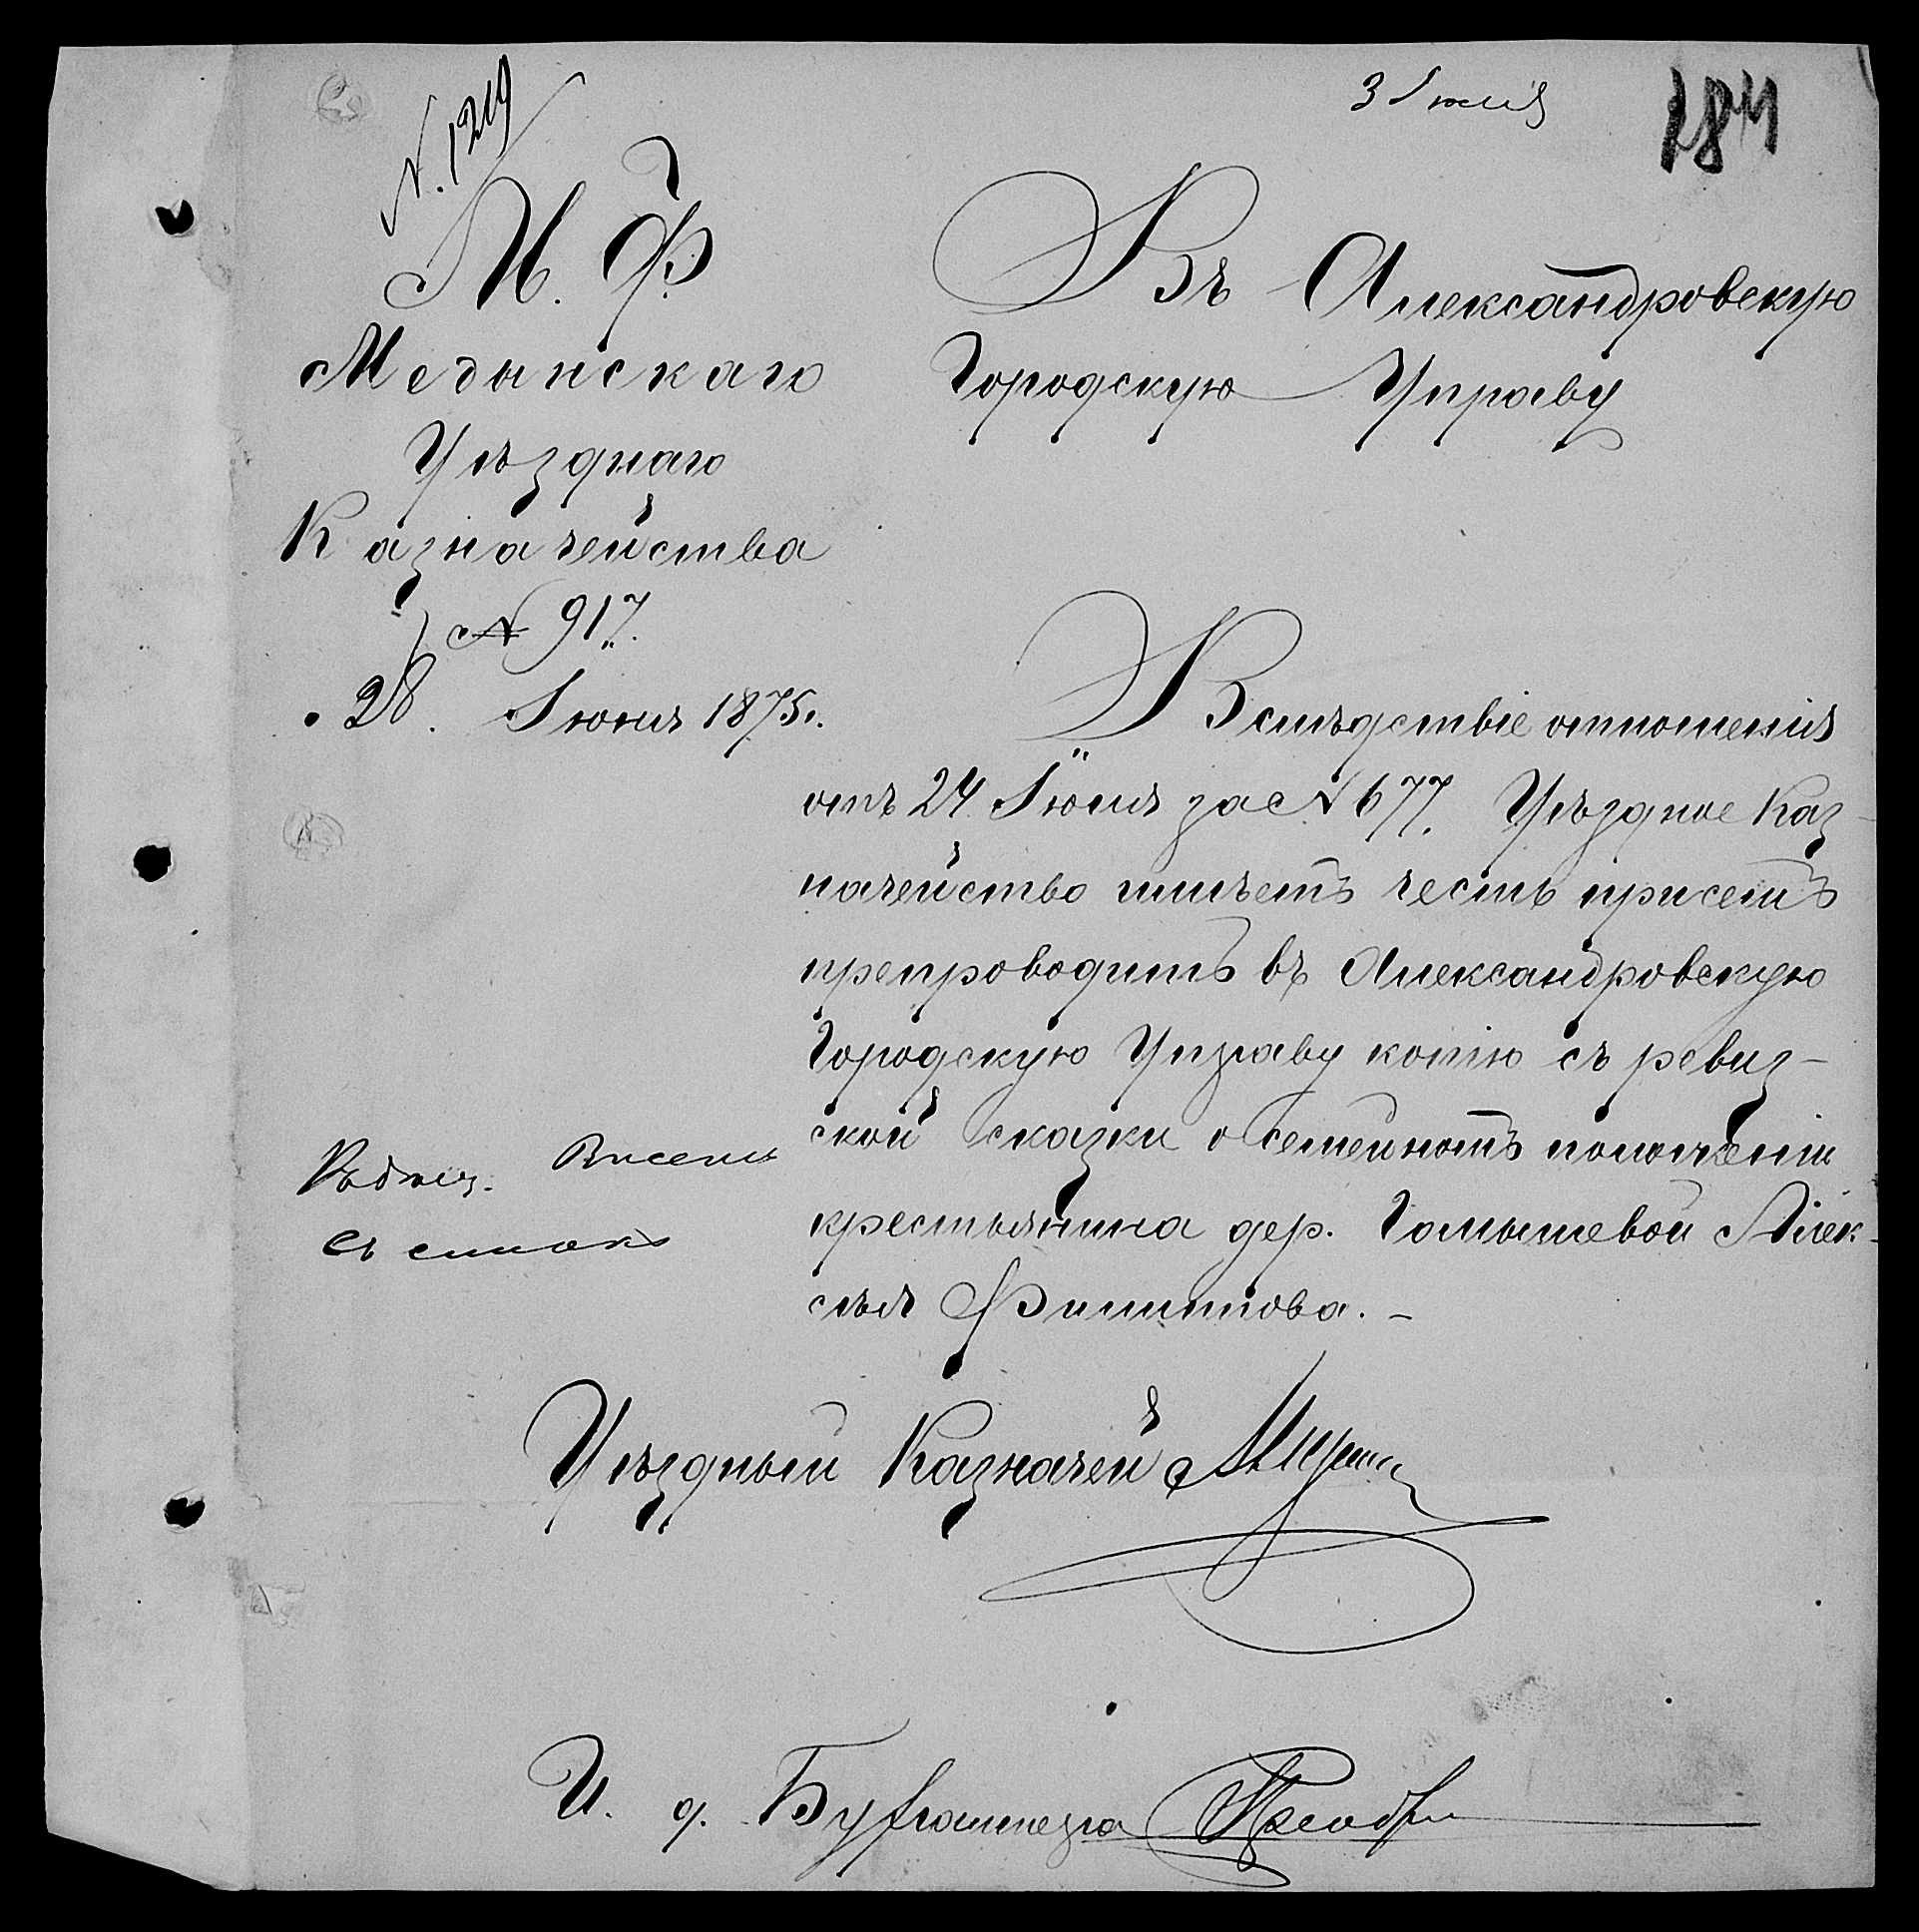 N. 1219
3 Июля
184
М. Ф.
Медынскаго
Уѣзднаго
Казначейства
№ 917.
28. Іюня 1875 г.
Въ Александровскую
Городскую Управу
Вслѣдствіе отношенія
отъ 24 Іюня за № 677. Уѣздное Каз-
начейство имѣетъ честь при семъ
препроводить въ Александровскую
Городскую Управу копію съ ревиз-
ской сказки о семейномъ положеніи
крестьянина дер. Гомышевой Алек-
сѣя Филиппова. –
Внесенъ
въ списокъ
Уѣздный Казначей
И. д. Бухгалтера